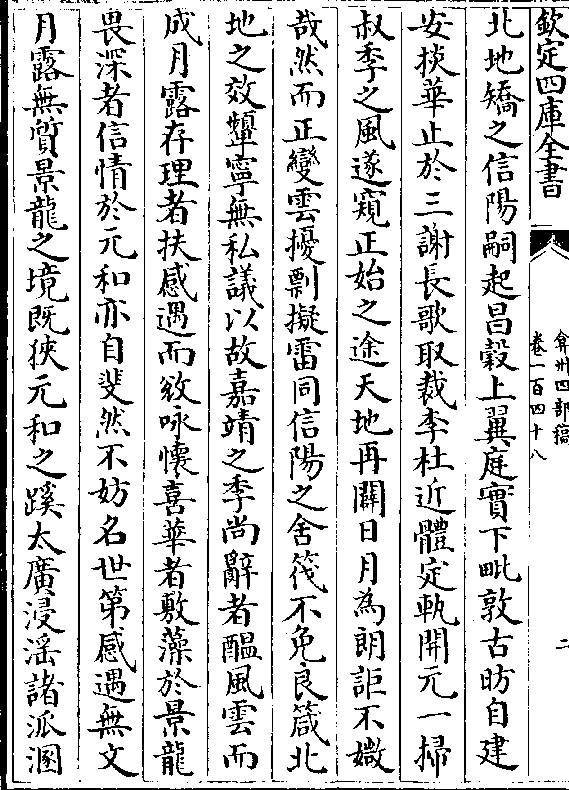 欽定四庫全書
弇州四部稿
卷一百四十八
二
北地矯之信陽嗣起昌穀上翼庭實下毗敦古昉自建
安掞華止於三謝長歌取裁李杜近體定軌開元一掃
叔季之風遂窺正始之途天地再闢日月為朗詎不媺
哉然而正變雲擾剽擬雷同信陽之舍筏不免良箴北
地之效顰寧無私議以故嘉靖之季尚辭者醖風雲而
成月露存理者扶感遇而敓咏懷喜華者敷藻於景龍
畏深者信情於元和亦自斐然不妨名世第感遇無文
月露無質景龍之境既狹元和之蹊太廣浸淫諸派溷